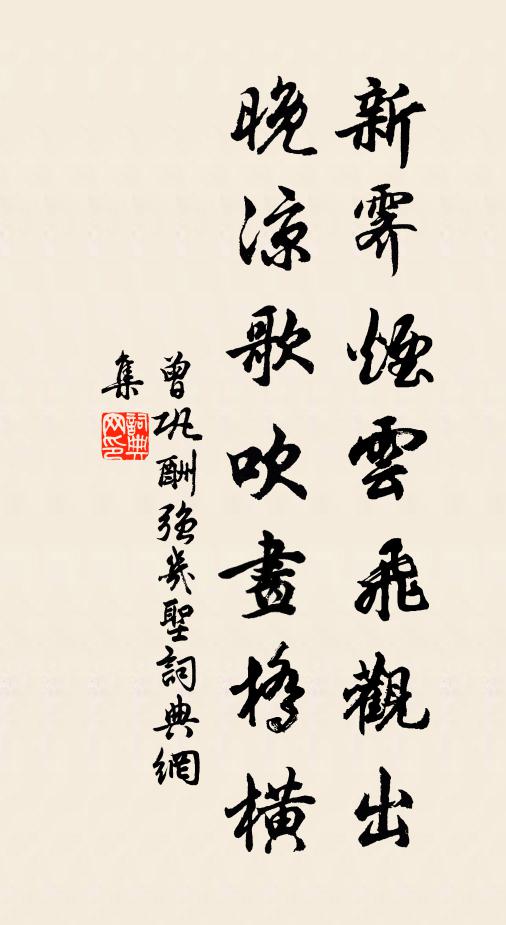 新霽煙雲飛觀出
晚涼歌吹畫橋橫
曾巩酬强幾聖詞典網
集
詞典
网印